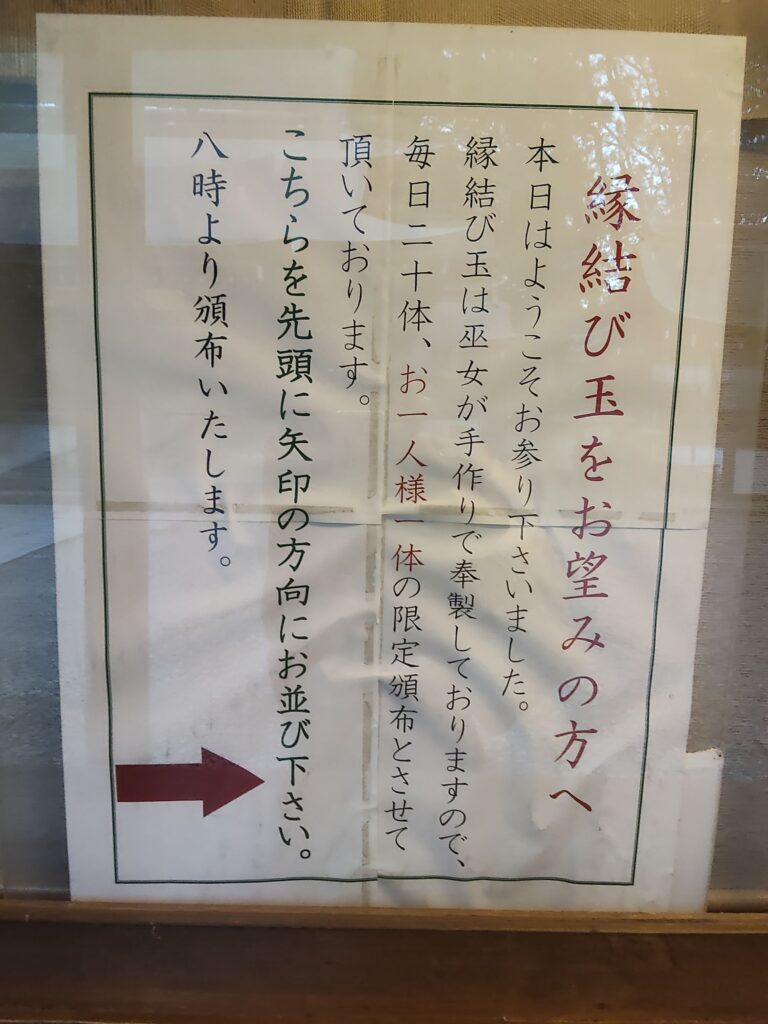 縁結び玉をお望みの方へ
本日はようこそお参り下さいました。
縁結び玉は巫女が手作りで奉製しておりますので、
毎日二十体、お一人様一体の限定頒布とさせて
頂いております。
こちらを先頭に矢印の方向にお並び下さい。
八時より頒布いたします。